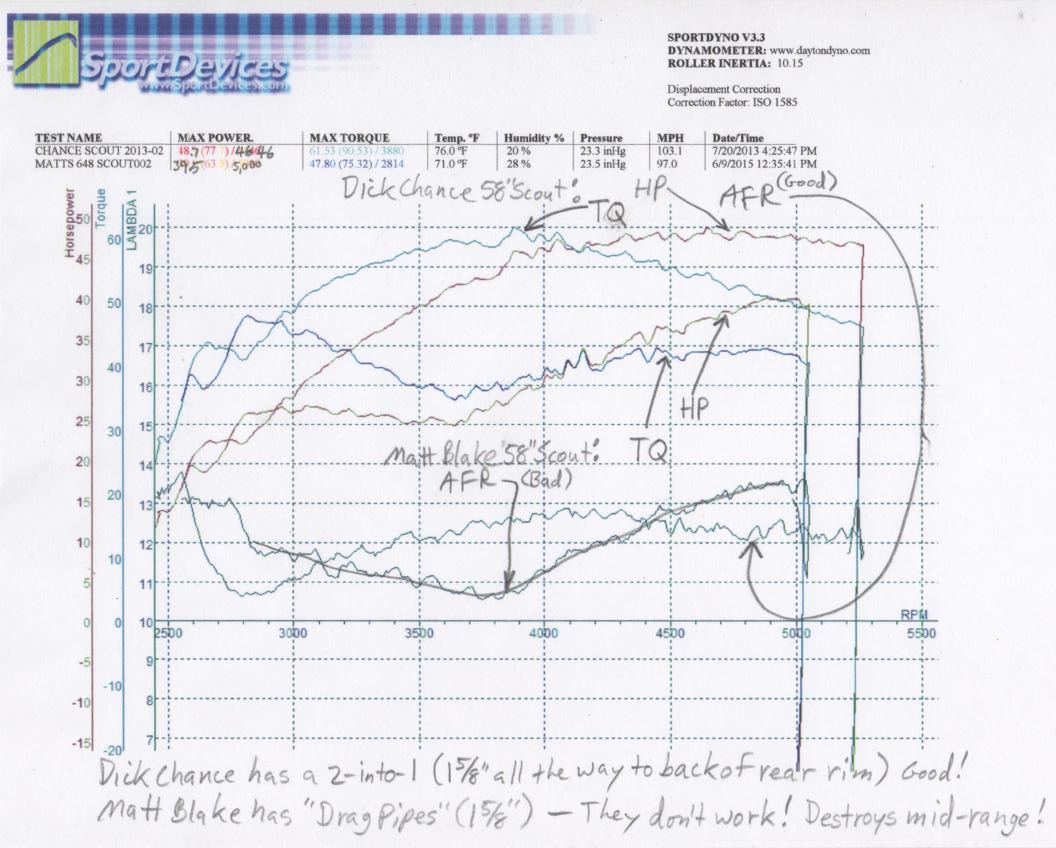 SportDevices
www.SportDevices.com
SPORTDYNO V3.3
DYNAMOMETER: www.daytondyno.com
ROLLER INERTIA: 10.15
Displacement Correction
Correction Factor: ISO 1585
TEST NAME MAX POWER. MAX TORQUE Temp. ºF Humidity % Pressure MPH Date/Time
CHANCE SCOUT 2013-02 61.53 (90.53) / 3880 76.0 ºF 20 % 23.3 inHg 103.1 7/20/2013 4:25:47 PM
MATTS 648 SCOUT002 47.80 (75.32) / 2814 71.0 ºF 28 % 23.5 inHg 97.0 6/9/2015 12:35:41 PM
Dick Chance 58" Scout: HP AFR (Good)
TQ
Horsepower Torque LAMBDA 1
50 60 20
45 19
40 50 18
35 40 17
30 16
25 30 15
20 14
15 20 13
10 10 12
5 11
0 0 10
-5 9
-10 -10 8
-15 -20 7
HP
TQ
Matt Blake 58" Scout:
AFR (Bad)
RPM
2500 3000 3500 4000 4500 5000 5500
Dick Chance has a 2-into-1 (1 5/8" all the way to back of rear rim) Good!
Matt Blake has "Drag Pipes" (1 5/8") — They don't work! Destroys mid-range!